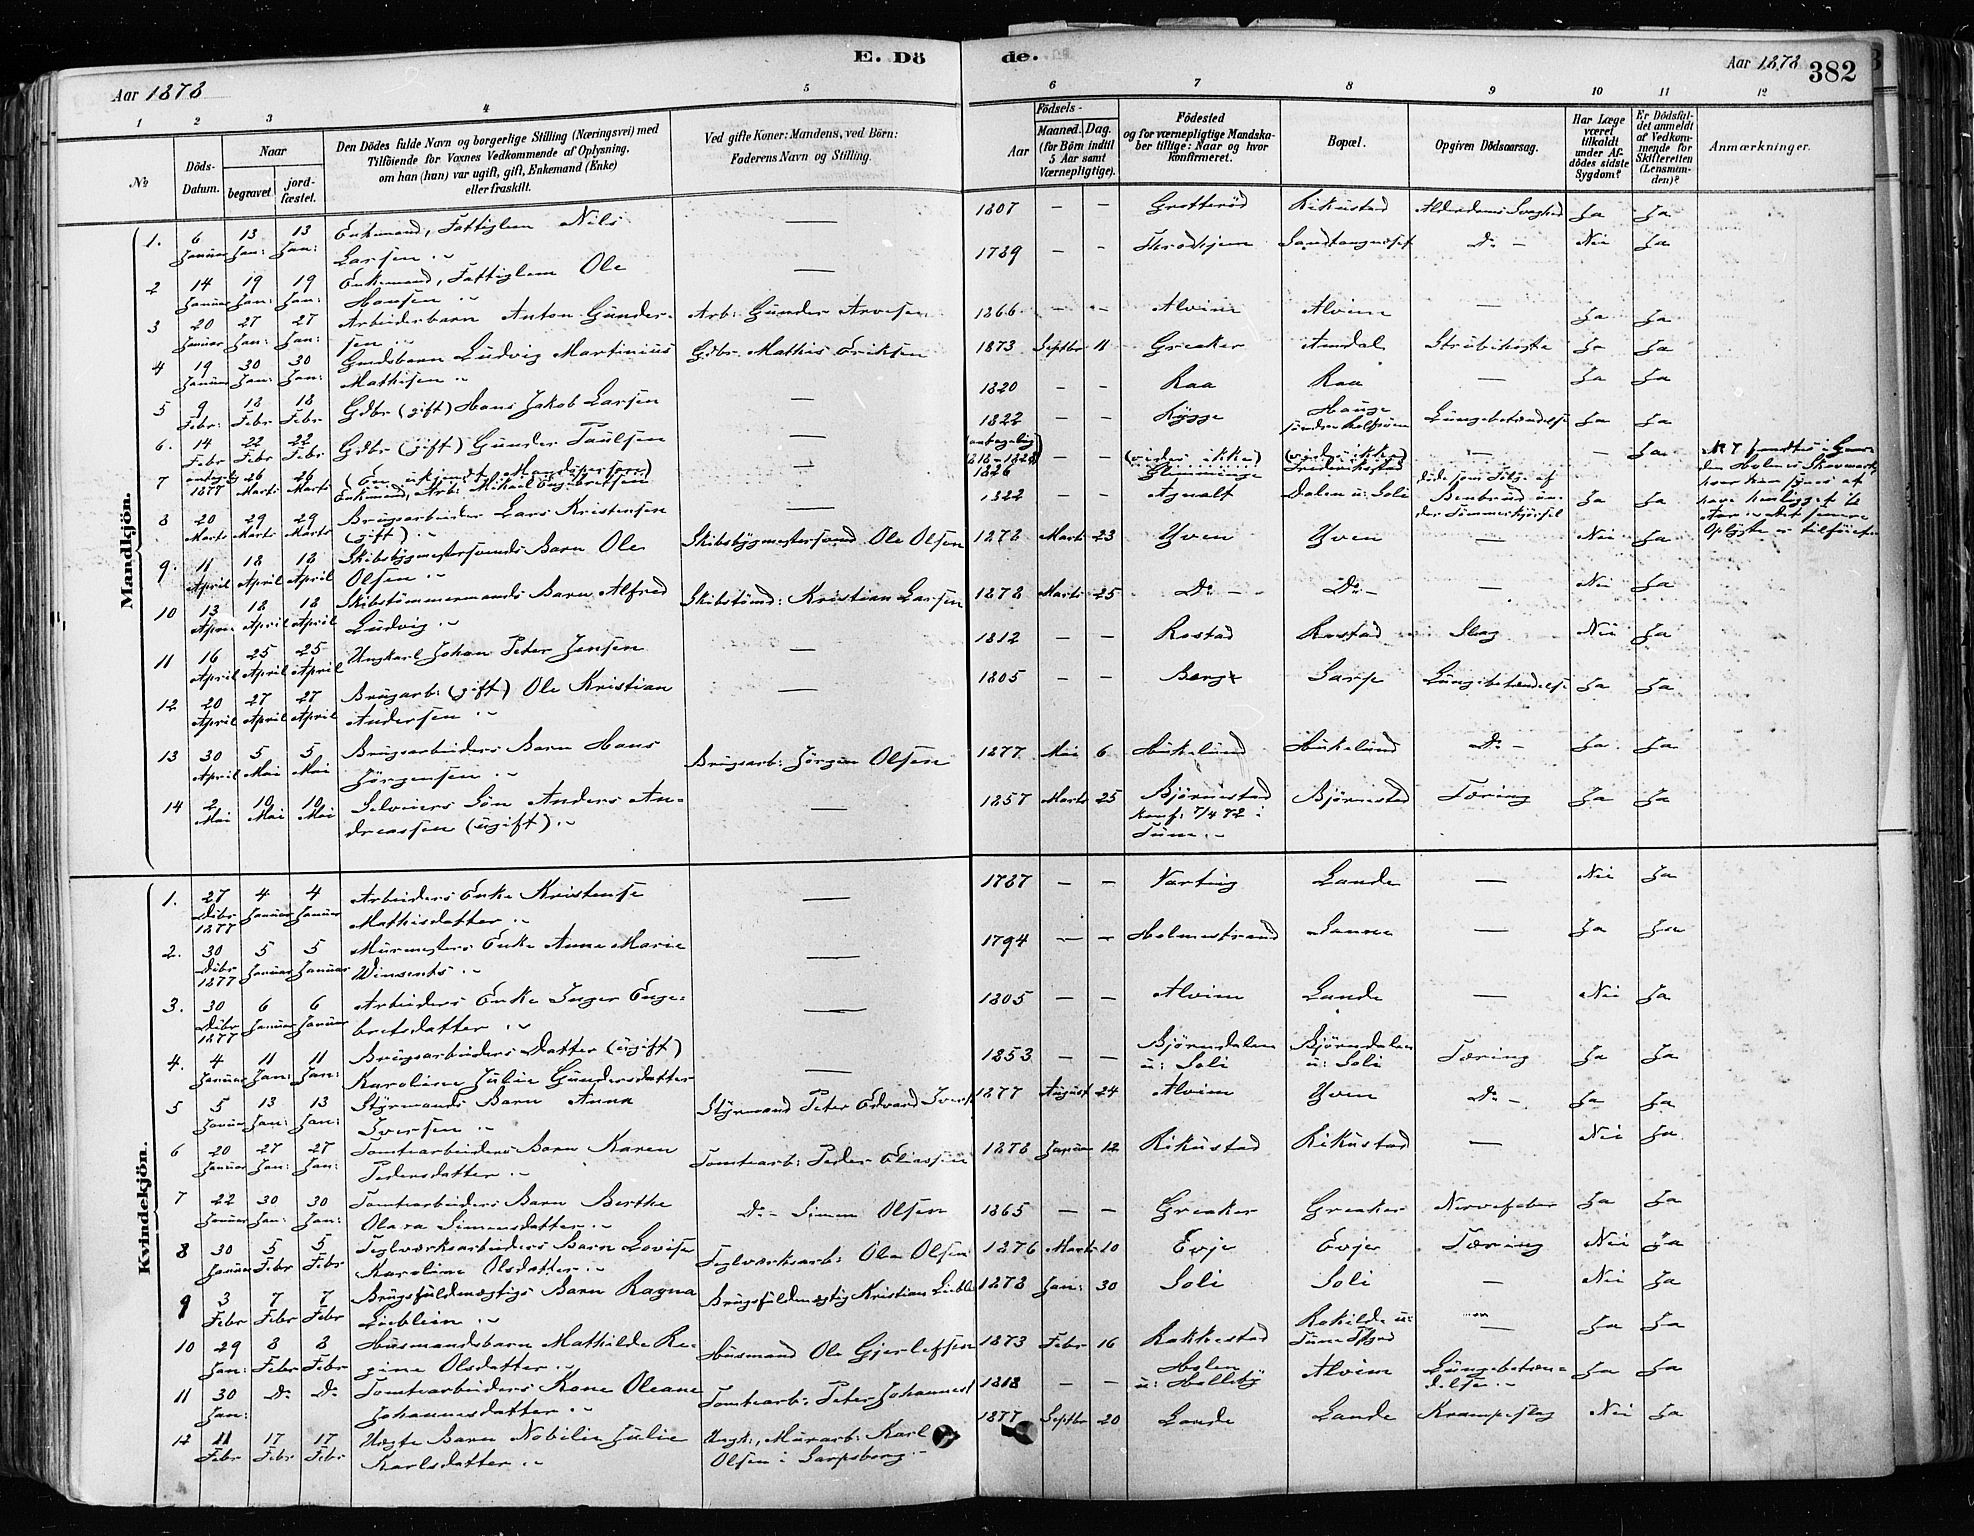 E. Dö
de.
Aar 1878
Aar 1878
382
1 2 3 4 5 6 7 8 9 10 11 12
№
Döds-Datum.
Naar
begravet
jordfæstet.
Den Dödes fulde Navn og borgerlige Stilling (Næringsvei) med Tilföiende for Voxnes Vedkommende af Oplysning, om han (hun) var ugift, gift, Enkemand (Enke) eller fraskilt.
Ved gifte Koner: Mandens, ved Börn: Faderens Navn og Stilling.
Födsels-
Aar
Maaned. Dag.
(for Börn indtil 5 Aar samt Værnepligtige).
Födested og for værnepligtige Mandskaber tillige: Naar og hvor konfirmeret.
Bopæl.
Opgiven Dödsaarsag.
Har Læge været tilkaldt under Afdödes sidste Sygdom?
Er Dödsfaldet anmeldt af Vedkommende for Skifteretten (Lensmanden)?
Anmærkninger.
Mandkjön.
1. 6 Januar 13 Jan: 13 Jan: Enkemand, Fattiglem Nils Larsen — 1807 — — Grotterød Kikustad Alderdoms Svaghed Ja Ja
2 14 Januar 19 Jan: 19 Jan: Enkemand, Fattiglem Ole Hansen — 1789 — — Sandtangnæset Do — Nei Ja
3 20 Januar 27 Jan: 27 Jan: Arbeiderbarn Anton Gundersen Arb: Gunder Arvesen 1866 — — Alvim Alvim — Ja Ja
4 19 Januar 30 Jan: 30 Jan: Gmdsbarn Ludvig Martinius Mathisen Gdbr. Mathis Eriksen 1873 Septbr 11 Greaker Amdal Strubehoste Ja Ja
5 9 Febr: 18 Febr 18 Febr Gdbr (gift) Hans Jakob Larsen — 1820 — — Raa Raa — Ja Ja
6. 14 Febr 22 Febr 22 Febr Gdbr (gift) Gunder Paulsen — 1822 — — Rygge Hauge søndre Rolfsøen Lungebetændelse Ja Ja
7 antagelig 1877 26 Marts 26 Marts (En ukjendt Mandsperson) Enkemand, Arb: Mikael Engebretsen — (antagelig 1818 - 1828) 1826 — — (vides ikke) Glemminge (vides ikke) Frederikstad — — Ja
8 20 Marts 29 Marts 29 Marts Brugsarbeider Lars Kristensen (gift) — 1822 — — Agnalt Dalen u: Soli døde som Følge af Benbrud under Tømmerkjørsel Ja Ja
9. 11 April 18 April 18 April Skibsbygmestersvends Barn Ole Olsen Skibsbygmestersvend Ole Olsen 1878 Marts 23 Yven Yven — Nei Ja
10 13 April 18 April 18 April Skibstømmermands Barn Alfred Ludvig Skibstømd: Kristian Larsen 1878 Marts 25 Do — Do — — Nei Ja
11 16 April 25 April 25 April Ungkarl Johan Peter Jensen — 1812 — — Rostad Rostad Slag Nei Ja
12 20 April 27 April 27 April Brugarb: (gift) Ole Kristian Andersen — 1805 — — Berg Sarp Lungebetændelse Ja Ja
13 30 April 5 Mai 5 Mai Brugsarbeiders Barn Hans Jørgensen Brugsarb: Jørgen Olsen 1877 Mai 6 Hukelund Hukelund Do — Ja Ja
14 2 Mai 10 Mai 10 Mai Selveiers Søn Anders Andreassen (ugift) — 1857 Marts 25 Bjørnstad konf: 7/4 72 i Tune Bjørnstad Tæring Ja Ja
Kvindekjön.
1. 27 Dcbr 1877 4 Januar 4 Januar Arbeiders Enke Kristense Mathisdatter — 1787 — — Varteig Lande — Nei Ja
2. 30 Dcbr 1877 5 Januar 5 Januar Murmesters Enke Anne Marie Winsents — 1794 — — Holmestrand Sanne — Ja Ja
3. 30 Dcbr 1877 6 Januar 6 Januar Arbeiders Enke Inger Engebretsdatter — 1805 — — Alvim Lande — Nei Ja
4. 4 Januar 11 Jan: 11 Jan: Brugsarbeiders Datter (ugift) Karoline Julie Gundersdatter — 1853 — — Bjørndalen u: Soli Bjørndalen u: Soli Tæring Ja Ja
5 5 Januar 13 Jan: 13 Jan: Styrmands Barn Anna Iversen Styrmand Peter Edvard Ivers 1877 August 24 Alvim Yven Do — Ja Ja
6 20 Januar 27 Jan: 27 Jan: Tomtearbeiders Barn Karen Pedersdatter Tomtearb: Peder Eliassen 1878 Januar 12 Kikustad Kikustad — Nei Ja
7 22 Januar 30 Jan: 30 Jan: Tomtearbeiders Barn Berthe Olava Simensdatter Do — Simen Olsen 1865 — — Greaker Greaker Nervefeber Ja Ja
8 30 Januar 5 Febr 5 Febr Teglværksarbeiders Barn Lovise Karoline Olsdatter Teglværksarb: Ole Olsen 1876 Marts 10 Evje Evje Tæring Nei Ja
9 3 Febr 7 Febr 7 Febr Brugsfuldmægtigs Barn Ragna Lieblein Brugsfuldmægtig Kristian Liebl 1878 Jan: 30 Soli Soli — Nei Ja
10 29 Jan: 8 Febr 8 Febr Husmandsbarn Mathilde Regine Olsdatter Husmand Ole Gjerlefsen 1873 Febr 16 Rakkestad Rokilde u: — Ja Ja
11 30 Jan: Do Do Tomtearbeiders Kone Oleane Johannesdatter Tomtearb: Peter Johannes 1818 — — Holen u: Halleby Alvim Lungebetændelse Ja Ja
12 11 Febr 17 Febr 17 Febr Uægte Barn Nobilie Julie Karlsdatter Ungk:, Murarb: Karl Olsen i Sarpsborg 1877 Septbr 20 Lande Lande Krampeslag Nei Ja